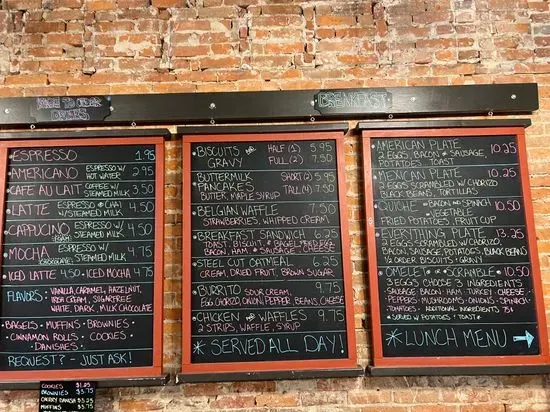 MADE TO ORDER
DRINKS
ESPRESSO 1.95
AMERICANO ESPRESSO W/ HOT WATER 2.95
CAFE AU LAIT COFFEE W/ STEAMED MILK 3.50
LATTE ESPRESSO CHAI W/ STEAMED MILK 4.50
CAPPUCINO ESPRESSO W/ STEAMED MILK 4.50
FOAM
MOCHA ESPRESSO W/ STEAMED MILK 4.75
CHOCOLATE
ICED LATTE 4.50 ICED MOCHA 4.75
FLAVORS: VANILLA, CARAMEL, HAZELNUT,
IRISH CREAM, SUGARFREE
WHITE, DARK, MILK CHOCOLATE
BAGELS • MUFFINS • BROWNIES •
CINNAMON ROLLS • COOKIES •
DANISHES •
REQUEST? - JUST ASK!
COOKIES $1.25
BROWNIES $3.75
CHERRY DANISH $3.25
MUFFINS $3.75
BREAKFAST
BISCUITS AND HALF (1) 5.95
GRAVY FULL (2) 7.50
BUTTERMILK SHORT (2) 5.95
PANCAKES TALL (4) 7.50
BUTTER, MAPLE SYRUP
BELGIAN WAFFLE 7.50
STRAWBERRIES, WHIPPED CREAM
BREAKFAST SANDWICH 6.25
TOAST, BISCUIT BAGEL
BACON HAM SAUSAGE
STEEL CUT OATMEAL 6.25
CREAM, DRIED FRUIT, BROWN SUGAR
BURRITO SOUR CREAM, 9.75
EGG CHORIZO, ONION, PEPPER, BEANS, CHEESE
CHICKEN AND WAFFLES 9.75
2 STRIPS, WAFFLE, SYRUP
* SERVED ALL DAY!
AMERICAN PLATE 10.25
2 EGGS, BACON OR SAUSAGE,
POTATOES, TOAST
MEXICAN PLATE 10.25
2 EGGS SCRAMBLED W/ CHORIZO
BLACK BEANS, TORTILLAS
QUICHE BACON AND SPINACH 10.50
VEGETABLE
FRIED POTATOES, FRUIT CUP
EVERYTHING PLATE 13.25
2 EGGS SCRAMBLED W/ CHORIZO,
BACON, SAUSAGE, POTATOES, BLACK BEANS
1/2 ORDER BISCUITS & GRAVY
OMELET OR SCRAMBLE 10.50
3 EGGS CHOOSE 3 INGREDIENTS
SAUSAGE, BACON, HAM, TURKEY, CHEESE
PEPPERS, MUSHROOMS, ONIONS, SPINACH
TOMATOES ADDITIONAL INGREDIENTS 75¢
* SERVED W/ POTATOES & TOAST *
* LUNCH MENU